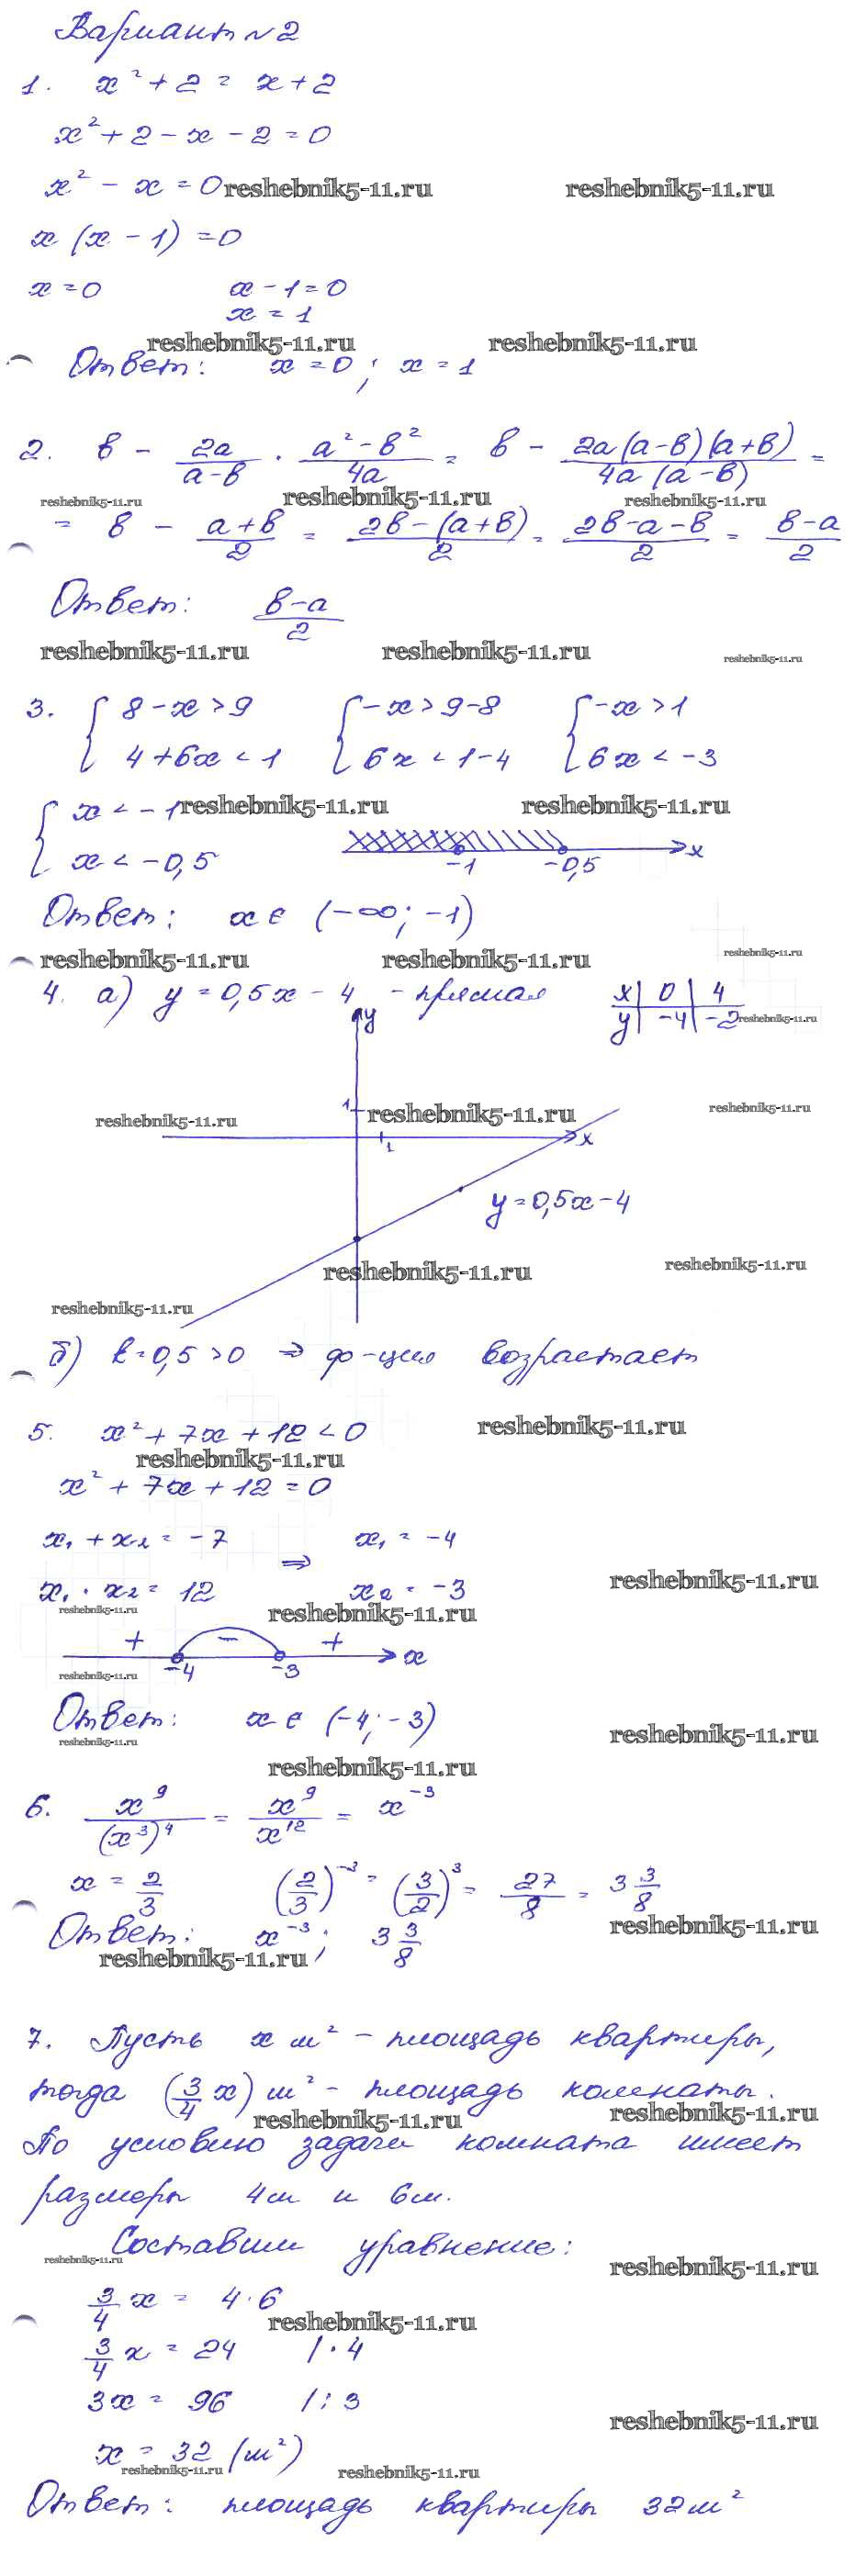 Вариант №2
1. x² + 2 = x + 2
x² + 2 - x - 2 = 0
x² - x = 0 reshebnik5-11.ru reshebnik5-11.ru
x (x - 1) = 0
x = 0 x - 1 = 0
x = 1
reshebnik5-11.ru reshebnik5-11.ru
Ответ: x = 0; x = 1
2. в - 2a/(a-в) · (a²-в²)/4a = в - 2a(a-в)(a+в)/(4a(a-в)) =
reshebnik5-11.ru reshebnik5-11.ru reshebnik5-11.ru
= в - (a+в)/2 = (2в-(a+в))/2 = (2в-a-в)/2 = (в-a)/2
Ответ: (в-a)/2
reshebnik5-11.ru reshebnik5-11.ru reshebnik5-11.ru
3. { 8-x>9 { -x>9-8 { -x>1
4+6x<1 6x<1-4 6x<-3
{ x<-1 reshebnik5-11.ru reshebnik5-11.ru
x<-0,5 -1 -0,5 x
Ответ: x є (-∞; -1)
reshebnik5-11.ru reshebnik5-11.ru reshebnik5-11.ru
4. а) y = 0,5x - 4 - прямая x | 0 | 4
y | -4 | -2 reshebnik5-11.ru
y
1 reshebnik5-11.ru reshebnik5-11.ru
reshebnik5-11.ru
1 x
y = 0,5x - 4
reshebnik5-11.ru reshebnik5-11.ru
reshebnik5-11.ru
б) k = 0,5 > 0 ⇒ ф-ция возрастает
5. x² + 7x + 12 < 0 reshebnik5-11.ru
reshebnik5-11.ru
x² + 7x + 12 = 0
x₁ + x₂ = -7 ⇒ x₁ = -4
reshebnik5-11.ru
x₁ · x₂ = 12 x₂ = -3
reshebnik5-11.ru reshebnik5-11.ru
+ - +
-4 -3 x
reshebnik5-11.ru
Ответ: x є (-4; -3)
reshebnik5-11.ru reshebnik5-11.ru
reshebnik5-11.ru
6. x⁹/(x³)⁴ = x⁹/x¹² = x⁻³
x = 2/3 (2/3)⁻³ = (3/2)³ = 27/8 = 3 3/8
Ответ: x⁻³; 3 3/8 reshebnik5-11.ru
reshebnik5-11.ru
7. Пусть x м² - площадь квартиры,
тогда (3/4 x) м² - площадь комнаты.
reshebnik5-11.ru reshebnik5-11.ru
По условию задачи комната имеет
размеры 4м и 6м.
Составим уравнение:
reshebnik5-11.ru reshebnik5-11.ru
3/4 x = 4·6
reshebnik5-11.ru
3/4 x = 24 | · 4
3x = 96 | : 3
reshebnik5-11.ru
x = 32 (м²)
reshebnik5-11.ru reshebnik5-11.ru
Ответ: площадь квартиры 32м²